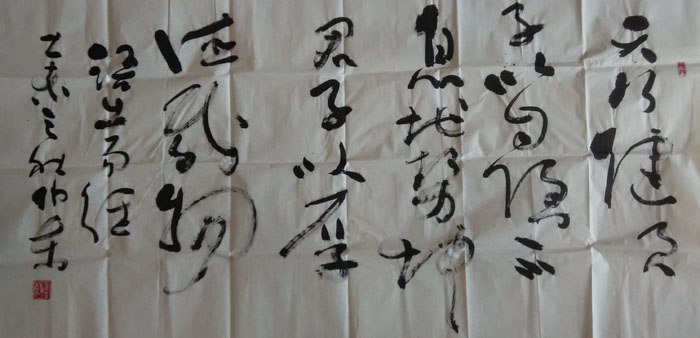 天行健君
子以自强不
息地势坤
君子以厚
德载物
语出易经